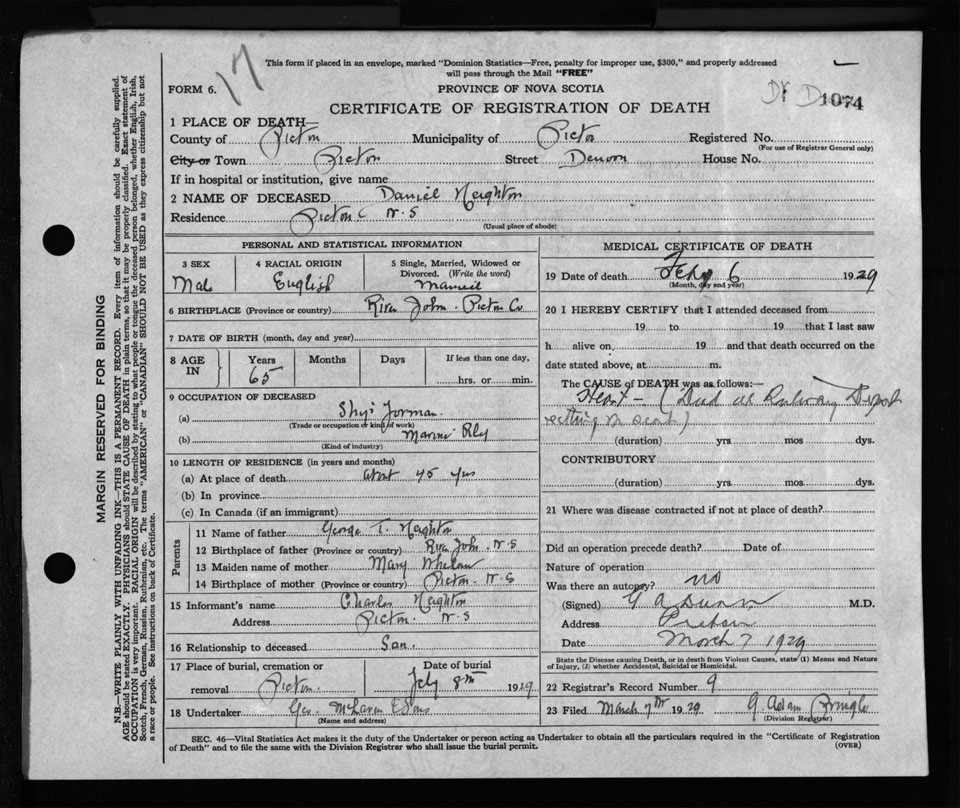 17
This form if placed in an envelope, marked "Dominion Statistics—Free, penalty for improper use, $300," and properly addressed
will pass through the Mail "FREE"
FORM 6.
PROVINCE OF NOVA SCOTIA
Dr D 1074
CERTIFICATE OF REGISTRATION OF DEATH
1 PLACE OF DEATH—
County of Pictou Municipality of Pictou Registered No.
(For use of Registrar General only)
City or Town Pictou Street Denoon House No.
If in hospital or institution, give name
2 NAME OF DECEASED Daniel Heighton
Residence Pictou C N.S
(Usual place of abode)
PERSONAL AND STATISTICAL INFORMATION
3 SEX 4 RACIAL ORIGIN 5 Single, Married, Widowed or
Divorced. (Write the word)
Male English Married
6 BIRTHPLACE (Province or country) River John. Pictou Co
7 DATE OF BIRTH (month, day and year)
8 AGE IN Years Months Days If less than one day,
65 hrs. or min.
9 OCCUPATION OF DECEASED
(a) Ship Forman
(Trade or occupation or kind of work)
(b) Marine Rly
(Kind of industry)
10 LENGTH OF RESIDENCE (in years and months)
(a) At place of death about 45 yrs
(b) In province
(c) In Canada (if an immigrant)
Parents
11 Name of father George T. Heighton
12 Birthplace of father (Province or country) River John. N.S
13 Maiden name of mother Mary Whelan
14 Birthplace of mother (Province or country) Pictou. N.S
15 Informant's name Charles Heighton
Address Pictou. N.S
16 Relationship to deceased Son.
17 Place of burial, cremation or Date of burial
removal Pictou. Feby 8th 1929
18 Undertaker Geo. McLaren & Sons
(Name and address)
MEDICAL CERTIFICATE OF DEATH
19 Date of death Feby 6 1929
(Month, day and year)
20 I HEREBY CERTIFY that I attended deceased from
19 to 19 that I last saw
h alive on, 19 and that death occurred on the
date stated above, at m.
The CAUSE of DEATH was as follows:—
Heart – (Died at Railway Depot
in seat)
(duration) yrs mos dys.
CONTRIBUTORY
(duration) yrs. mos. dys.
21 Where was disease contracted if not at place of death?
Did an operation precede death? Date of
Nature of operation
Was there an autopsy? no
(Signed) G A Dunn M.D.
Address Pictou
Date March 7 1929
State the Disease causing Death, or in death from Violent Causes, state (1) Means and Nature
of Injury, (2) whether Accidental, Suicidal or Homicidal.
22 Registrar's Record Number 9
23 Filed March 7th 1929 G. Adam Pringle
(Division Registrar)
SEC. 46—Vital Statistics Act makes it the duty of the Undertaker or person acting as Undertaker to obtain all the particulars required in the "Certificate of Registration
of Death" and to file the same with the Division Registrar who shall issue the burial permit.
(OVER)
MARGIN RESERVED FOR BINDING
N.B.—WRITE PLAINLY WITH UNFADING INK—THIS IS A PERMANENT RECORD. Every item of information should be carefully supplied.
AGE should be stated EXACTLY. PHYSICIANS should STATE CAUSE OF DEATH in plain terms, so that it may be properly classified. Exact statement of
OCCUPATION is very important. RACIAL ORIGIN will be described by stating to what people or tongue the deceased person belonged, whether English, Irish,
Scotch, French, German, Russian, Ruthenian, etc. The terms "AMERICAN" or "CANADIAN" SHOULD NOT BE USED as they express citizenship but not
a race or people. See instructions on back of Certificate.